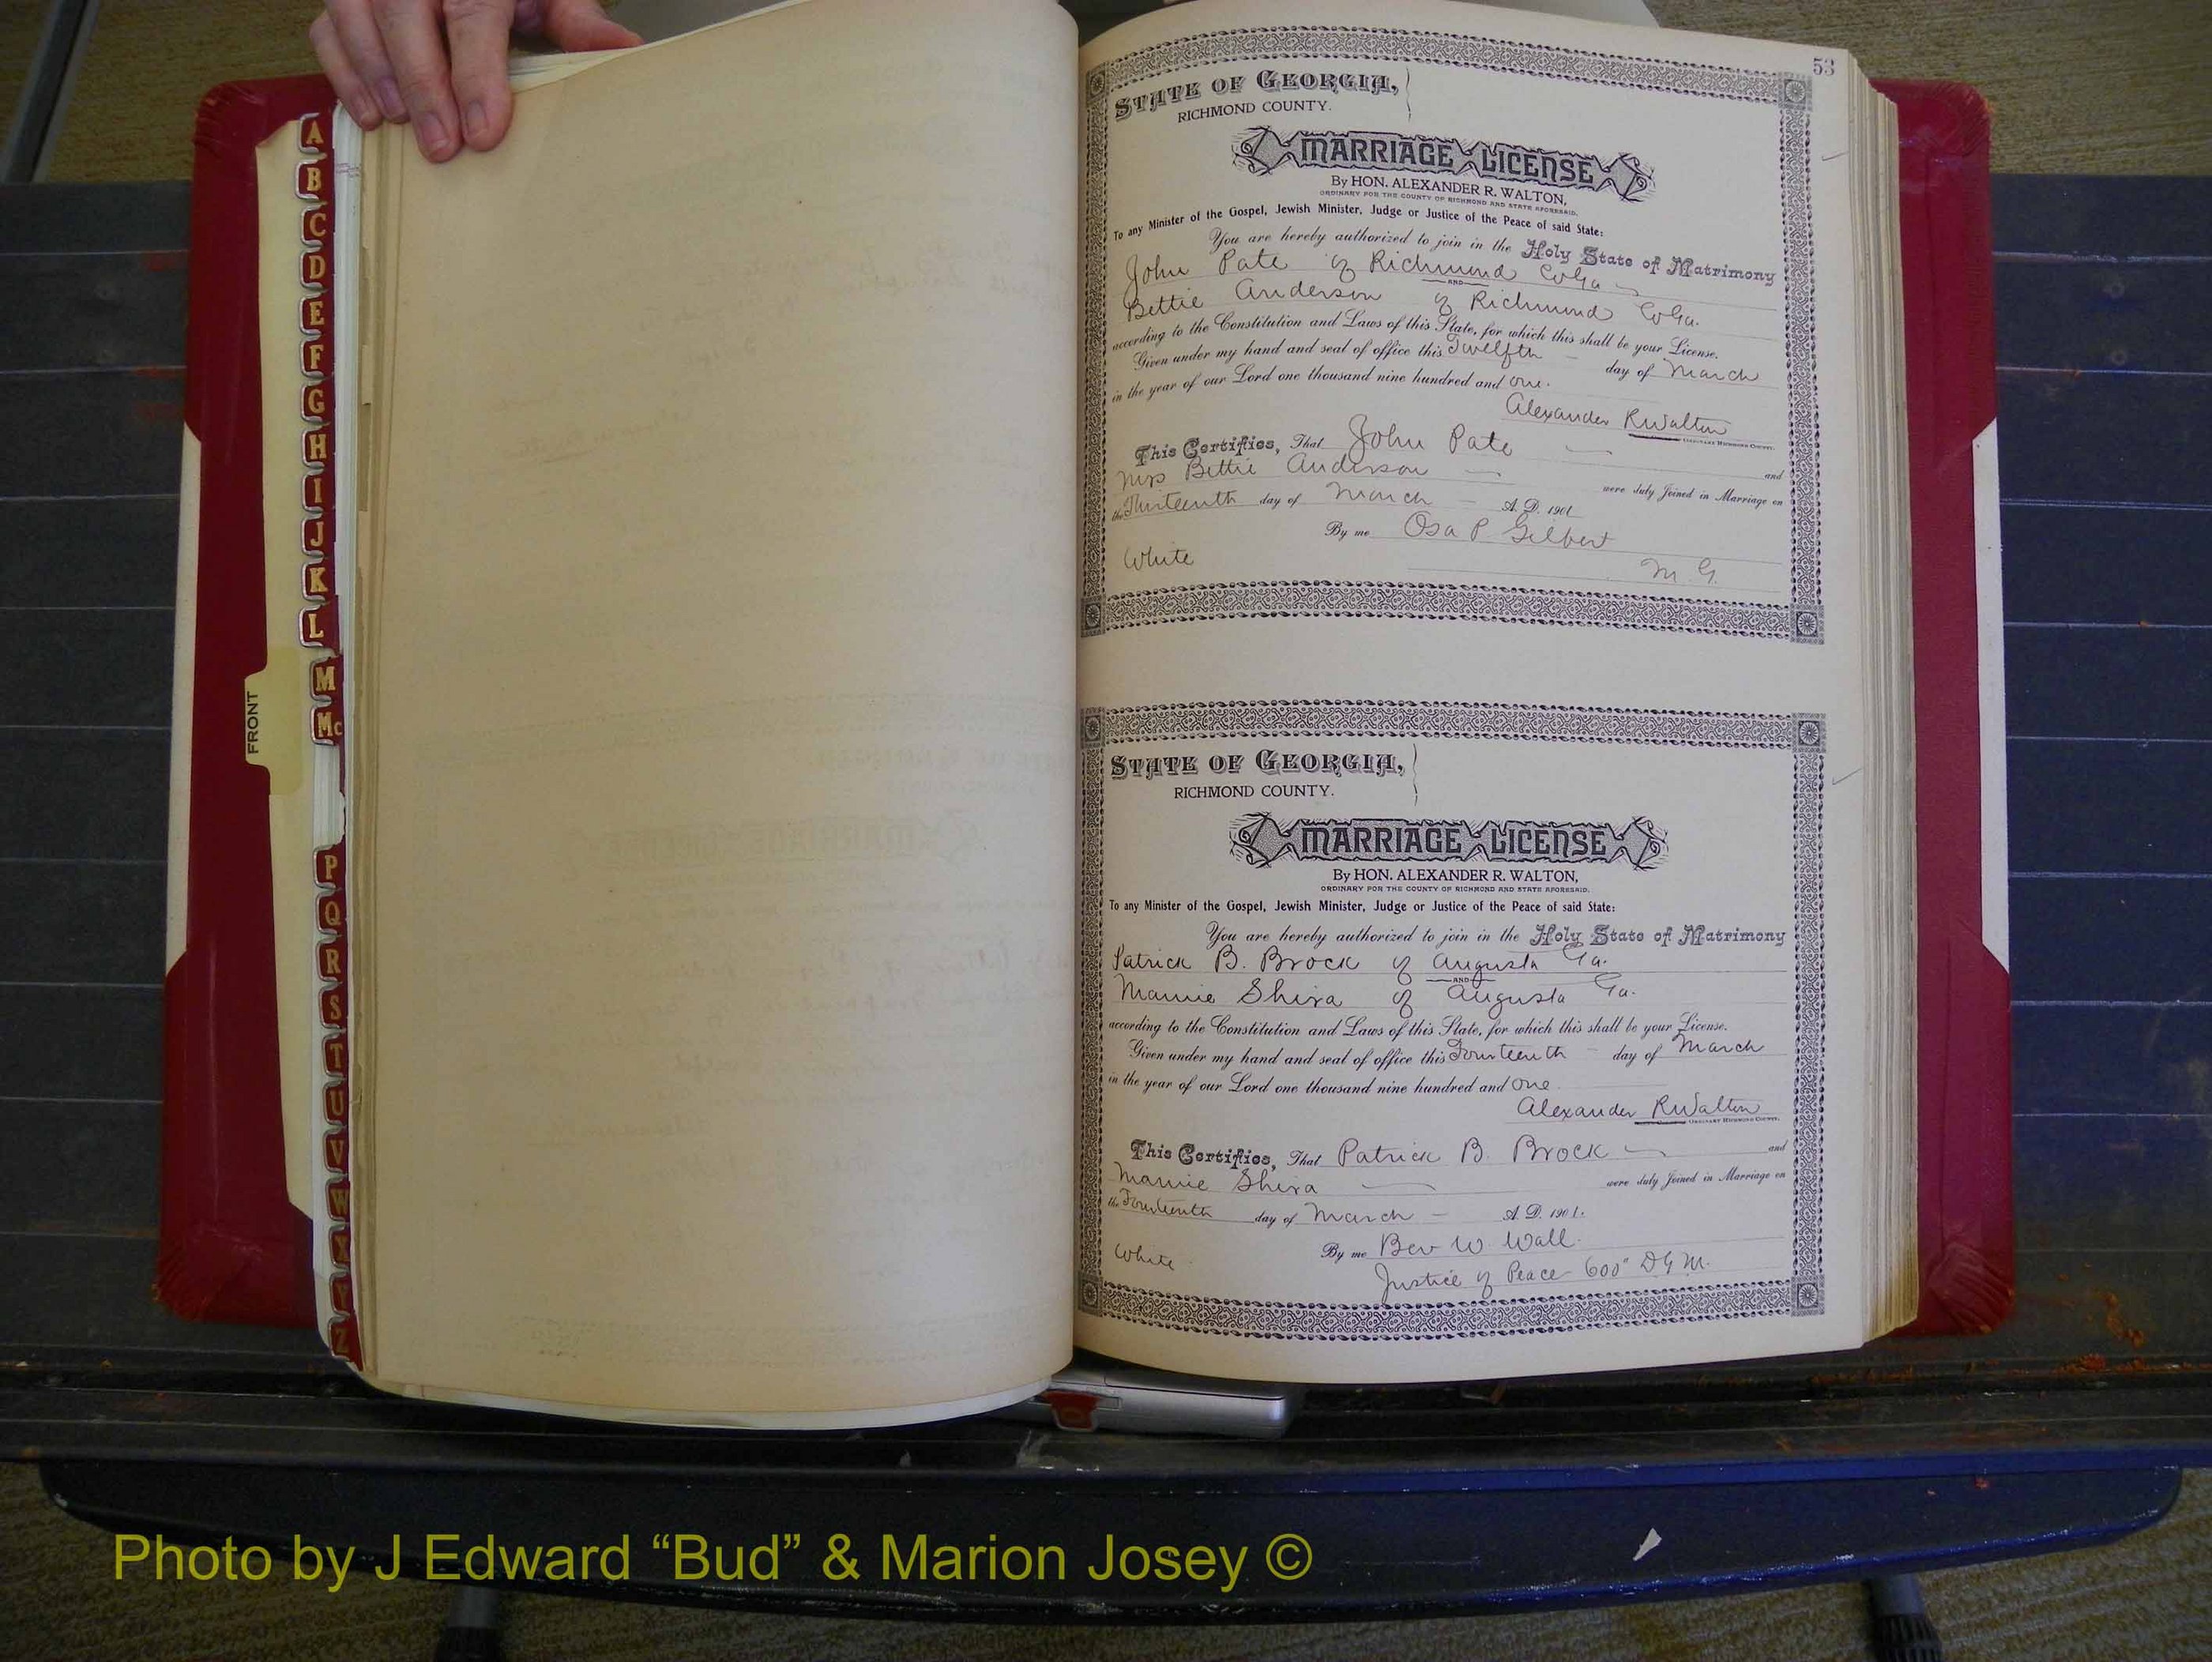 A
B
C
D
E
F
G
H
I
J
K
L
M
Mc
P
Q
R
S
T
U
V
W
X
Y
Z
FRONT
53
STATE OF GEORGIA,
RICHMOND COUNTY.
MARRIAGE LICENSE
By HON. ALEXANDER R. WALTON,
ORDINARY FOR THE COUNTY OF RICHMOND AND STATE AFORESAID.
To any Minister of the Gospel, Jewish Minister, Judge or Justice of the Peace of said State:
You are hereby authorized to join in the Holy State of Matrimony
John Pate of Richmond Co Ga
AND
Bettie Anderson of Richmond Co Ga.
according to the Constitution and Laws of this State, for which this shall be your License.
Given under my hand and seal of office this Twelfth day of March
in the year of our Lord one thousand nine hundred and one.
Alexander R Walton
ORDINARY RICHMOND COUNTY.
This Certifies, That John Pate and
Bettie Anderson were duly Joined in Marriage on
the Thirteenth day of March A. D. 1901
By me Osa P. Gilbert
White M. G.
STATE OF GEORGIA,
RICHMOND COUNTY.
MARRIAGE LICENSE
By HON. ALEXANDER R. WALTON,
ORDINARY FOR THE COUNTY OF RICHMOND AND STATE AFORESAID.
To any Minister of the Gospel, Jewish Minister, Judge or Justice of the Peace of said State:
You are hereby authorized to join in the Holy State of Matrimony
Patrick B. Brock of Augusta Ga.
AND
Mamie Shira of Augusta Ga.
according to the Constitution and Laws of this State, for which this shall be your License.
Given under my hand and seal of office this Fourteenth day of March
in the year of our Lord one thousand nine hundred and one
Alexander R Walton
ORDINARY RICHMOND COUNTY.
This Certifies, That Patrick B. Brock and
Mamie Shira were duly Joined in Marriage on
the Fourteenth day of March A. D. 1901.
By me Bev W. Wall.
White Justice of Peace 600" D G M.
Photo by J Edward “Bud” & Marion Josey ©